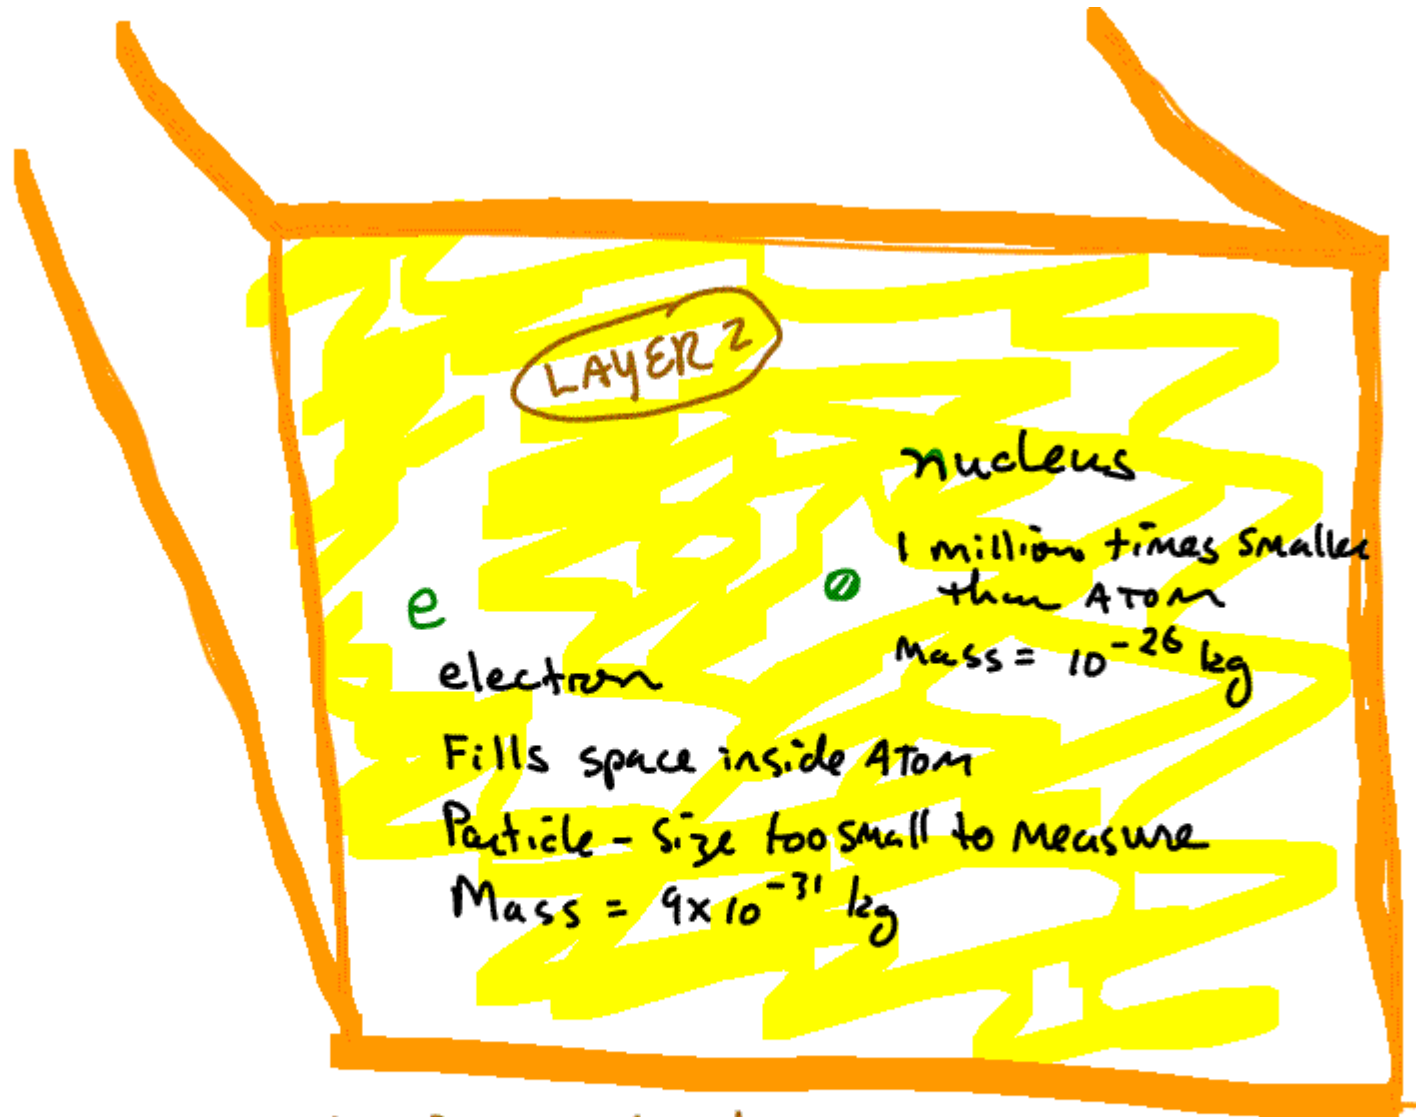 LAYER 2
nucleus
1 million times smaller
than ATOM
Mass = 10⁻²⁶ kg
e
electron
Fills space inside ATOM
Particle - size too small to measure
Mass = 9x10⁻³¹ kg